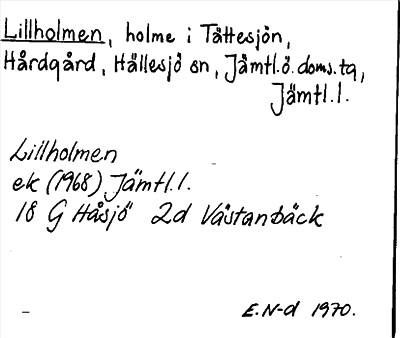 Lillholmen, holme i Tåttesjön,
Hårdgård, Hällesjö sn, Jämtl.ö.doms.tg,
Jämtl.l.
Lillholmen
ek (1968) Jämtl.l.
18 G Håsjö 2d Västanbäck
E.N-d 1970.